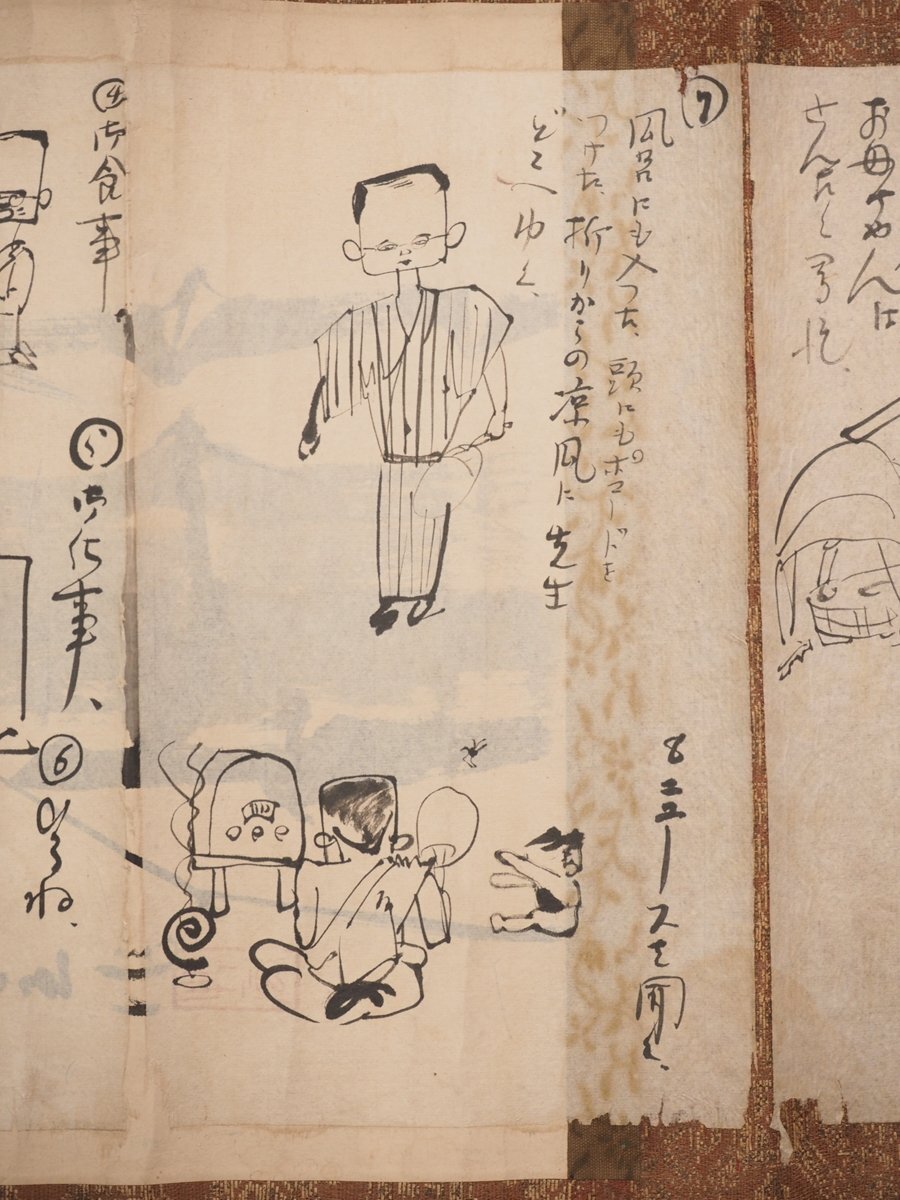 お母ちやんは
⑦
風呂にも入つた、頭にもポマードを
つけた、折りからの凉風に先生
どこへゆく、
8 ニュースを聞く、
④御食事
⑤御仕事、
⑥ひるね、